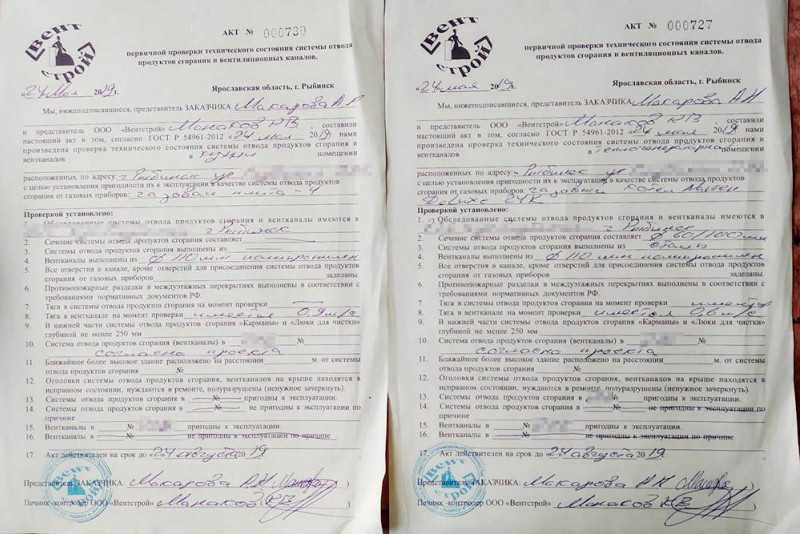 ВЕНТ СТРОЙ
АКТ № 000730
первичной проверки технического состояния системы отвода
продуктов сгорания и вентиляционных каналов.
24 мая 2019г.
Ярославская область, г. Рыбинск
Мы, нижеподписавшиеся, представитель ЗАКАЗЧИКА Макарова А.Н
и представитель ООО «Вентстрой» Манаков Р.В. составили
настоящий акт в том, согласно ГОСТ Р 54961-2012 24 мая 2019 нами
произведена проверка технического состояния системы отвода продуктов сгорания и
вентканалов в кухни помещении
расположенных по адресу г. Рыбинск ул
с целью установления пригодности их к эксплуатации в качестве системы отвода продуктов
сгорания от газовых приборов: газовая плита - 4
Проверкой установлено:
1. Обследованные системы отвода продуктов сгорания и вентканалы имеются в
г. Рыбинск
2. Сечение системы отвода продуктов сгорания составляет
3. Системы отвода продуктов сгорания выполнены из
4. Вентканалы выполнены из ф 110 мм полипропилен
5. Все отверстия в канале, кроме отверстий для присоединения системы отвода продуктов
сгорания от газовых приборов заделаны.
6. Противопожарные разделки в междуэтажных перекрытиях выполнены в соответствии с
требованиями нормативных документов РФ.
7. Тяга в системы отвода продуктов сгорания на момент проверки
8. Тяга в вентканалах на момент проверки имеется 0,9 м/с
9. В нижней части системы отвода продуктов сгорания «Карманы» и «Люки для чистки»
глубиной не менее 250 мм
10. Системы отвода продуктов сгорания (вентканалы) в №
согласно проекта
11. Ближайшее более высокое здание расположено на расстоянии м. от системы
отвода продуктов сгорания №
12. Оголовки системы отвода продуктов сгорания, вентканалов на крыше находятся в
исправном состоянии, нуждаются в ремонте, полуразрушены (ненужное зачеркнуть).
13. Системы отвода продуктов сгорания в № пригодны к эксплуатации.
14. Системы отвода продуктов сгорания в № не пригодны к эксплуатации по
причине
15. Вентканалы в № пригодны к эксплуатации
16. Вентканалы в № не пригодны к эксплуатации по причине
17. Акт действителен на срок до 24 августа 2019
Представитель ЗАКАЗЧИКА: Макарова А Н
Печник-контролер ООО «Вентстрой» Манаков Р В
ВЕНТ СТРОЙ
ВЕНТ СТРОЙ
АКТ № 000727
первичной проверки технического состояния системы отвода
продуктов сгорания и вентиляционных каналов.
24 мая 2019г.
Ярославская область, г. Рыбинск
Мы, нижеподписавшиеся, представитель ЗАКАЗЧИКА Макарова А Н
и представитель ООО «Вентстрой» Манаков Р В составили
настоящий акт в том, согласно ГОСТ Р 54961-2012 24 мая 2019 нами
произведена проверка технического состояния системы отвода продуктов сгорания и
вентканалов в теплогенераторной помещении
расположенных по адресу г. Рыбинск ул
с целью установления пригодности их к эксплуатации в качестве системы отвода продуктов
сгорания от газовых приборов: газовый котел Navien
Deluxe 24K
Проверкой установлено:
1. Обследованные системы отвода продуктов сгорания и вентканалы имеются в
г. Рыбинск
2. Сечение системы отвода продуктов сгорания составляет ф 60/100 мм
3. Системы отвода продуктов сгорания выполнены из сталь
4. Вентканалы выполнены из ф 110 мм полипропилен
5. Все отверстия в канале, кроме отверстий для присоединения системы отвода продуктов
сгорания от газовых приборов заделаны.
6. Противопожарные разделки в междуэтажных перекрытиях выполнены в соответствии с
требованиями нормативных документов РФ.
7. Тяга в системы отвода продуктов сгорания на момент проверки имеется
8. Тяга в вентканалах на момент проверки имеется 0,6 м/с
9. В нижней части системы отвода продуктов сгорания «Карманы» и «Люки для чистки»
глубиной не менее 250 мм
10. Системы отвода продуктов сгорания (вентканалы) в №
согласно проекта
11. Ближайшее более высокое здание расположено на расстоянии м. от системы
отвода продуктов сгорания №
12. Оголовки системы отвода продуктов сгорания, вентканалов на крыше находятся в
исправном состоянии, нуждаются в ремонте, полуразрушены (ненужное зачеркнуть).
13. Системы отвода продуктов сгорания в № пригодны к эксплуатации.
14. Системы отвода продуктов сгорания в № не пригодны к эксплуатации по
причине
15. Вентканалы в № пригодны к эксплуатации
16. Вентканалы в № не пригодны к эксплуатации по причине
17. Акт действителен на срок до 24 августа 2019
Представитель ЗАКАЗЧИКА: Макарова А Н
Печник-контролер ООО «Вентстрой» Манаков Р В
ВЕНТ СТРОЙ